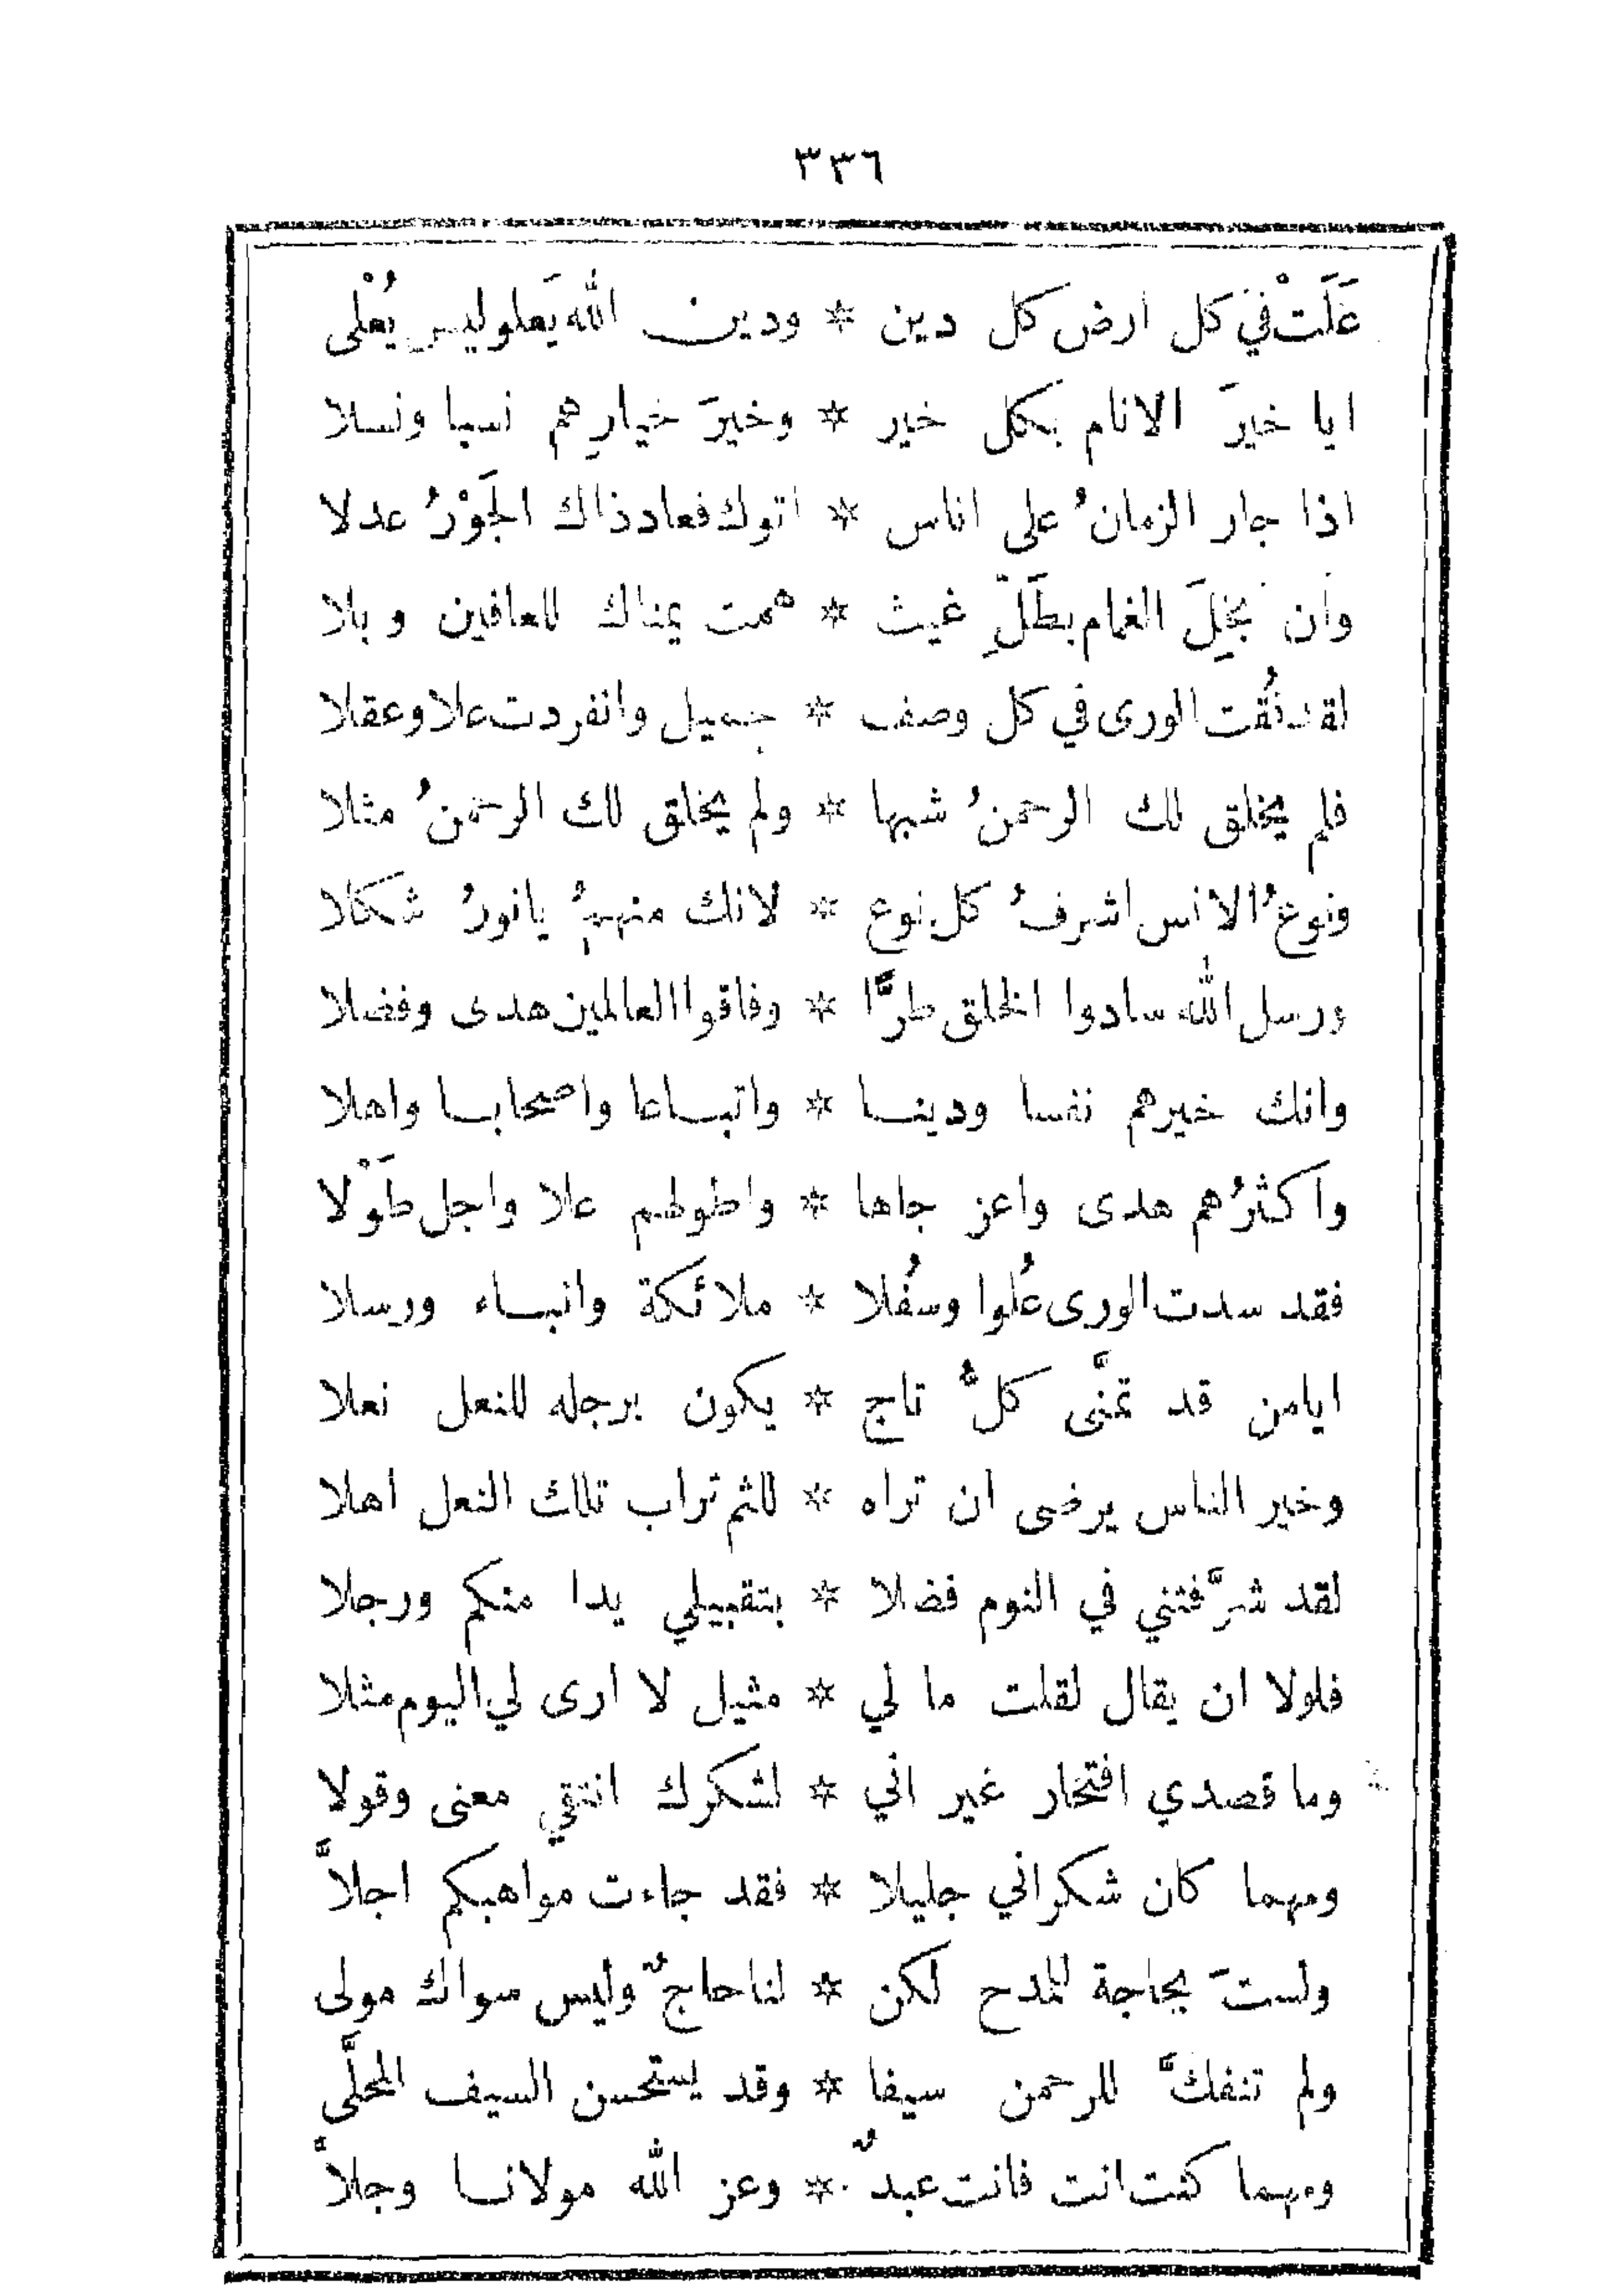 ٣٣٦
عَلَتْ في كل ارض كل دين * ودين الله يَعلو وليس يُعْلى
ايا خيرَ الانام بكل خير * وخيرَ خيارِهم نسبا ونسلا
اذا جار الزمانُ على اناس * اتوك فعاد ذاك الجَوْرُ عدلا
وان بخِلَ الغمام بطَلِّ غيث * همت يمناك للعافين وبلا
لقد فُقت الورى في كل وصف * جميل وانفردت علا وعقلا
فلم يخلق لك الرحمنُ شبها * ولم يخلق لك الرحمنُ مثلا
ونوعُ الانس اشرفُ كل نوع * لانك منهمُ يانورُ شكلا
ورسل الله سادوا الخلق طرًّا * وفاقوا العالمين هدى وفضلا
وانك خيرهم نفسا ودينا * واتباعا واصحابا واهلا
واكثرُهم هدى واعز جاها * واطولهم علا واجل طَوْلا
فقد سدت الورى عُلوا وسُفلا * ملائكة وانبياء ورسلا
ايامن قد تمنَّى كلُّ تاج * يكون برجله للنعل نعلا
وخير الناس يرضى ان تراه * للثم تراب تلك النعل اهلا
لقد شرَّفتني في النوم فضلا * بتقبيلي يدا منكم ورجلا
فلولا ان يقال لقلت ما لي * مثيل لا ارى لي اليوم مثلا
وما قصدي افتخار غير اني * لشكرك انتقي معنى وقولا
ومهما كان شكراني جليلا * فقد جاءت مواهبكم اجلاَّ
ولستَ بحاجة للمدح لكن * لنا حاجٌ وليس سواك مولى
ولم تنفكَّ للرحمن سيفا * وقد يستحسن السيف المحلَّى
ومهما كنت انت فانت عبدٌ * وعز الله مولانا وجلاَّ